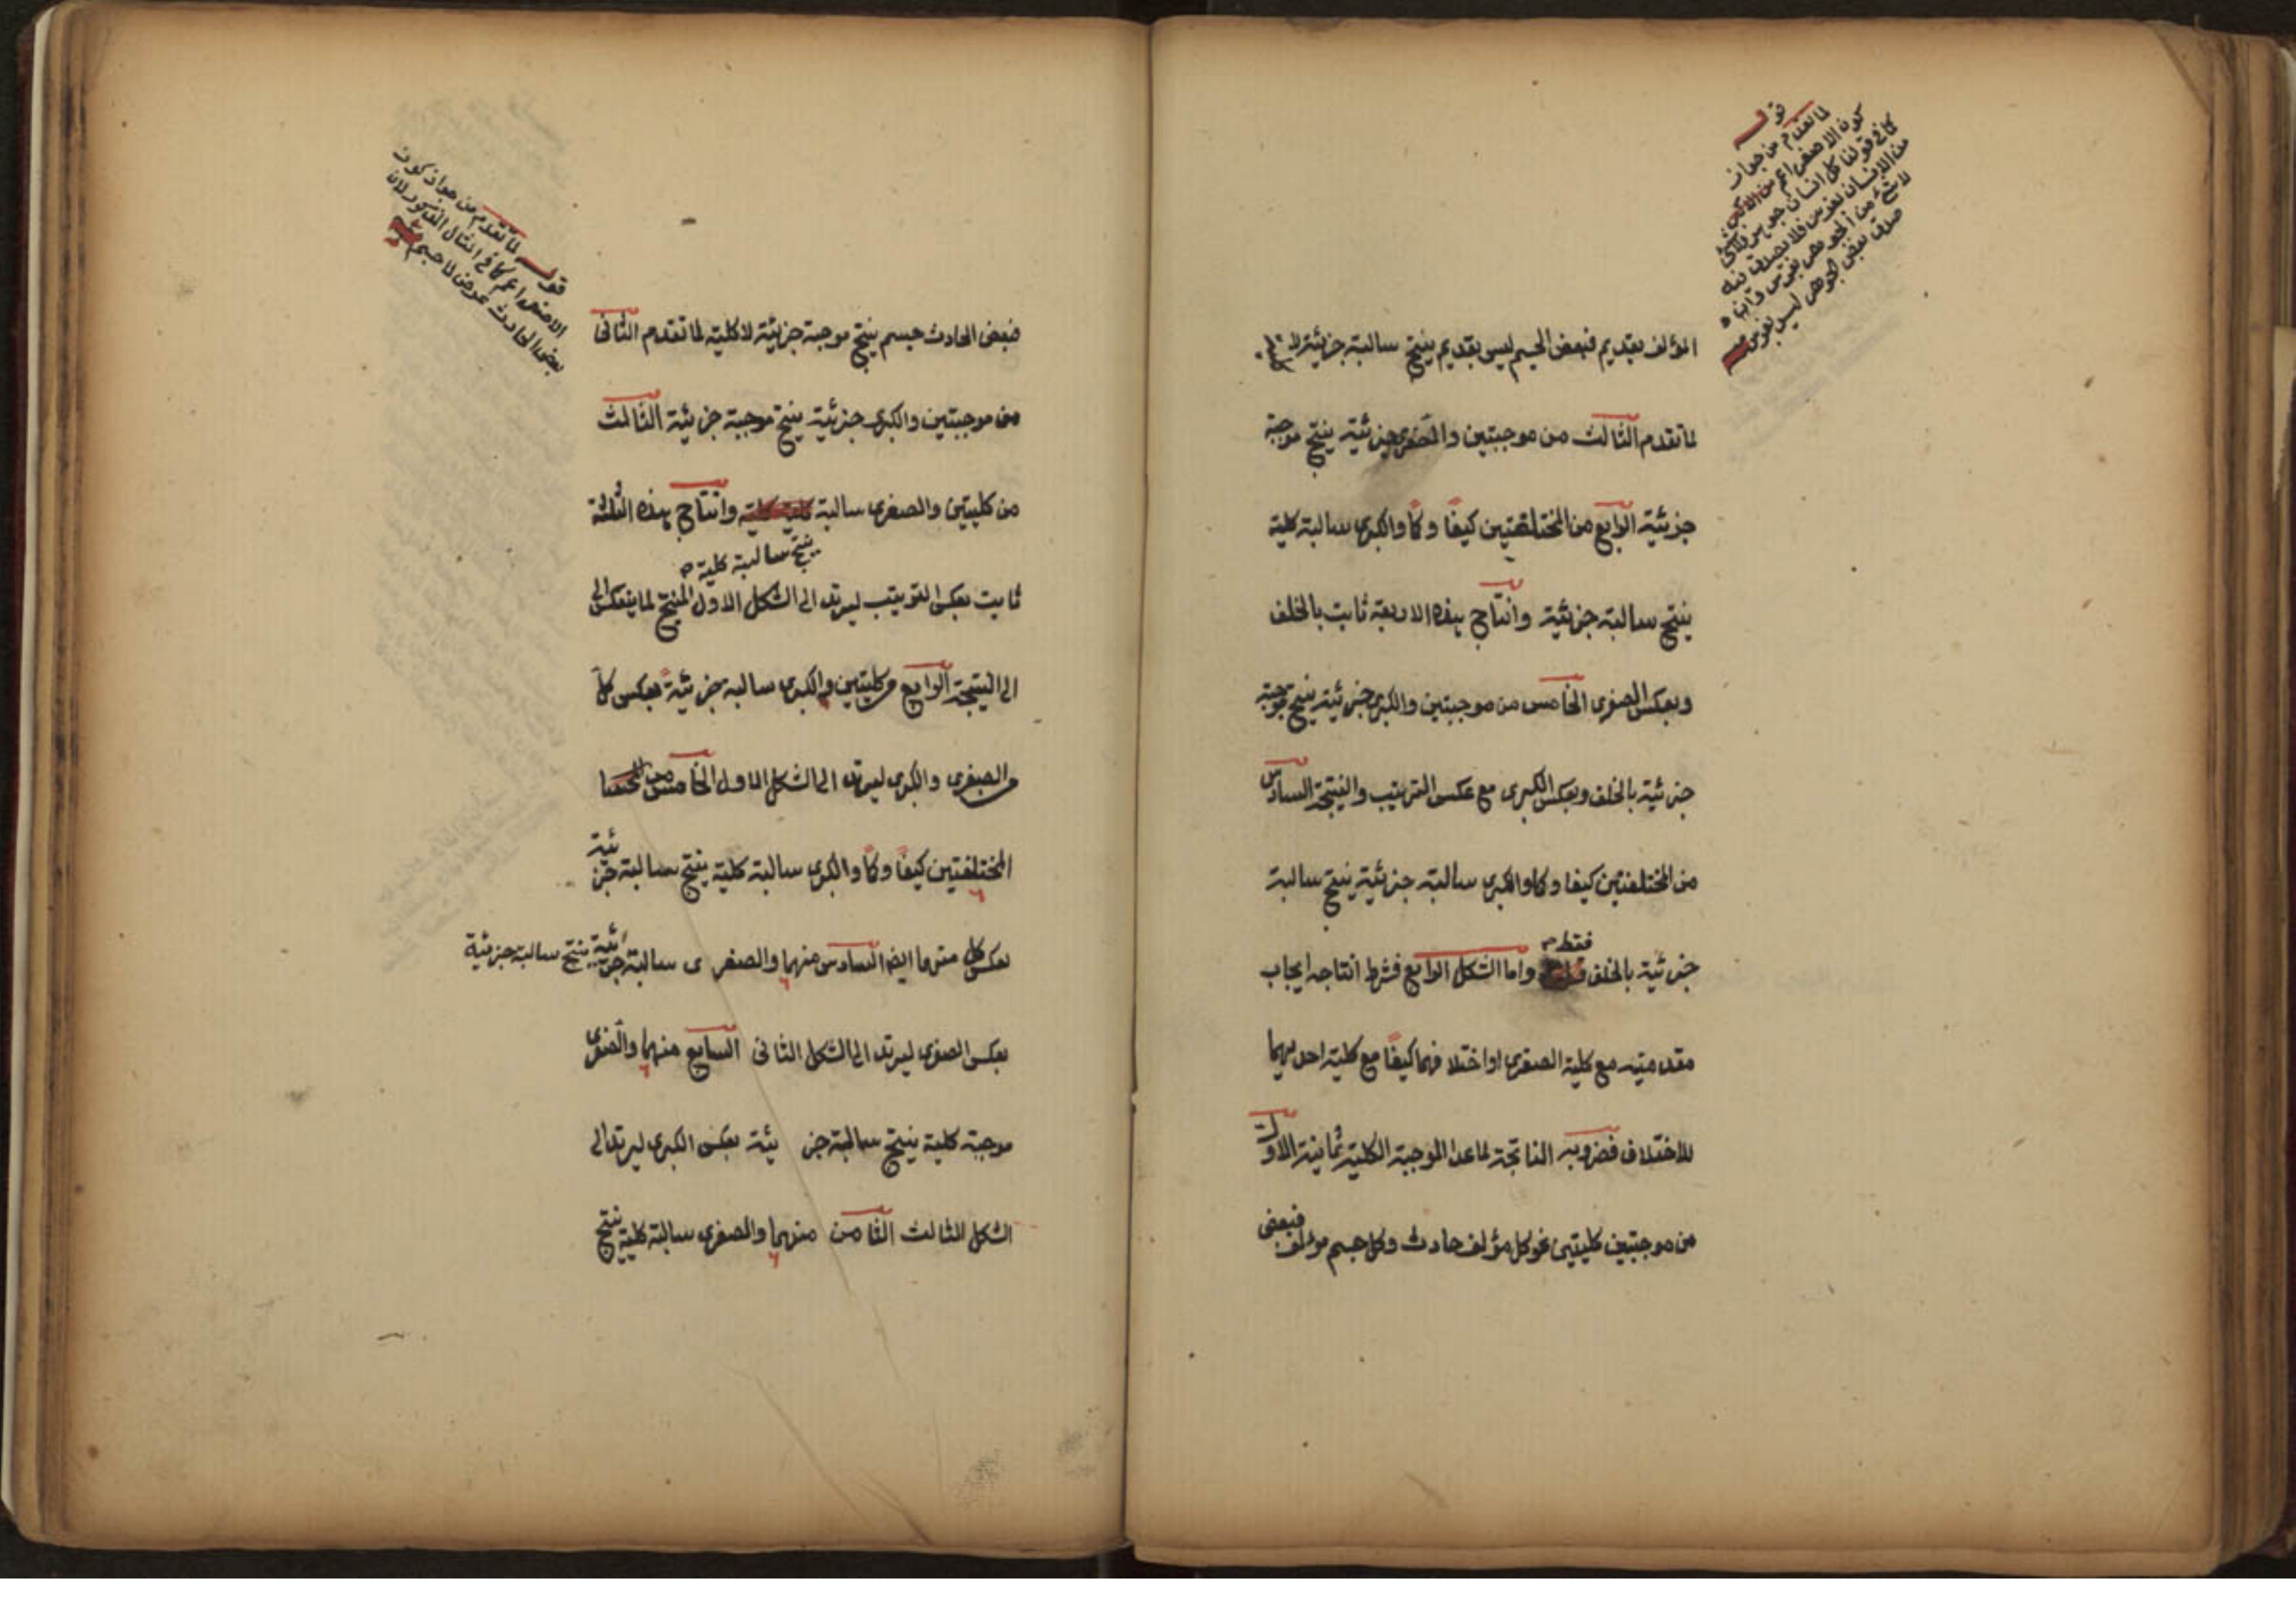 قوله
لما تقدم من جواز
كون الاصغر اعم من الاكبر
كما فى قولنا كل انسان جوهر ولا شئ
من الانسان بفرس فلا يصدق
لا شئ من الجوهر بفرس وان
صدق بعض الجوهر ليس بفرس
المؤلف بقديم فبعض الجسم ليس بقديم ينتج سالبة جزئية لا كلية
لما تقدم الثالث من موجبتين والصغرى جزئية ينتج موجبة
جزئية الرابع من المختلفتين كيفا وكما والكبرى سالبة كلية
ينتج سالبة جزئية وانتاج هذه الاربعة ثابت بالخلف
وبعكس الصغرى الخامس من موجبتين والكبرى جزئية ينتج موجبة
جزئية بالخلف وبعكس الكبرى مع عكس الترتيب والنتيجة السادس
من المختلفتين كيفا وكما والكبرى سالبة جزئية ينتج سالبة
جزئية بالخلف فقط واما الشكل الرابع فشرط انتاجه ايجاب
مقدمتيه مع كلية الصغرى او اختلافهما كيفا مع كلية احديهما
للاختلاف فضروبه الناتجة لما عدا الموجبة الكلية ثمانية الاول
من موجبتين كليتين نحو كل مؤلف حادث وكل جسم مؤلف فبعض
قوله لما تقدم من جواز كون
الاصغر اعم كما فى المثال المذكور لان
بعض الحادث عرض لا جسم
فبعض الحادث جسم ينتج موجبة جزئية لا كلية لما تقدم الثانى
من موجبتين والكبرى جزئية ينتج موجبة جزئية الثالث
من كليتين والصغرى سالبة كلية كلية وانتاج هذه الثلثة
ينتج سالبة كلية
ثابت بعكس الترتيب ليرتد الى الشكل الاول المنتج لما ينعكس الى
الى النتيجة الرابع من كليتين والكبرى سالبة جزئية بعكس كل
من الصغرى والكبرى ليرتد الى الشكل الاول الخامس من
المختلفتين كيفا وكما والكبرى سالبة كلية ينتج سالبة جزئية
بعكس كل منهما ايضا السادس منهما والصغرى سالبة جزئية ينتج سالبة جزئية
بعكس الصغرى ليرتد الى الشكل الثانى السابع منهما والصغرى
موجبة كلية ينتج سالبة جزئية بعكس الكبرى ليرتد الى
الشكل الثالث الثامن منهما والصغرى سالبة كلية ينتج